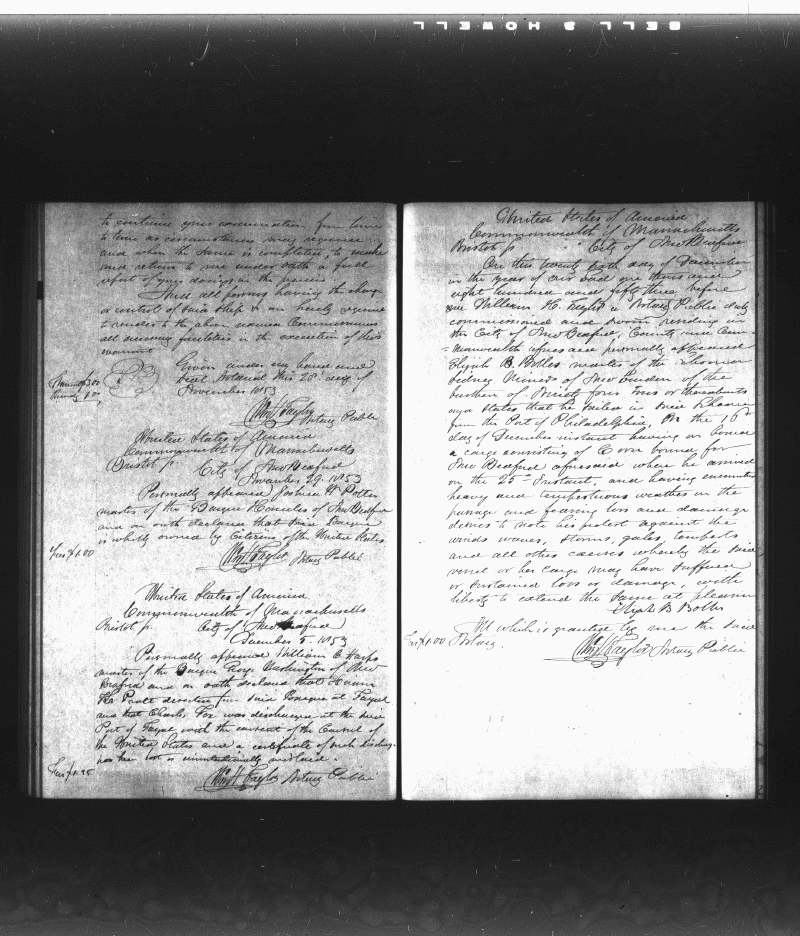 BELL & HOWELL
to continue your examination from time
to time as circumstances may require
and when the same is completed, to make
and return to me under oath a full
report of your doings in the premises
And all persons having the charge
or control of said ship are hereby required
to render to the above named Commissioners
all necessary facilities in the execution of this
warrant
Given under my hand and
Seal Notarial this 28 day of
November 1853
Wm H Taylor Notary Public
United States of America
Commonwealth of Massachusetts
Bristol ss. City of New Bedford
November 29. 1853
Personally appeared Joshua W. Potter
master of the Barque Hercules of New Bedford
and on oath declared that said Barque
is wholly owned by Citizens of the United States
Fees $1.00 Wm H Taylor Notary Public
United States of America
Commonwealth of Massachusetts
Bristol ss. City of New Bedford
December 5. 1853
Personally appeared William C.
master of the Barque George Washington of New
Bedford and on oath declared that
deserted from said Barque at Fayal
and that Charles Fox was discharged at the said
Port of Fayal with the consent of the Consul of
the United States and a certificate of such discharge
has been lost or unintentionally mislaid.
Wm H Taylor Notary Public
United States of America
Commonwealth of Massachusetts
Bristol ss. City of New Bedford
On this twenty sixth day of December
in the year of our Lord one thousand
eight hundred and fifty three before
me William H. Taylor a Notary Public duly
commissioned and sworn residing in
the City of New Bedford, County and Com
=monwealth aforesaid personally appeared
Elijah B. Bolles master of the Schooner
Sidney Miner of New London of the
burthen of Ninety four Tons or thereabouts
and states that he sailed in said Schooner
from the Port of Philadelphia, on the 16th
day of December instant having on board
a cargo consisting of Corn bound for
New Bedford aforesaid where he arrived
on the 25th Instant, and having encountered
heavy and tempestuous weather on the
passage and fearing loss and damage
desires to note his protest against the
winds waves, storms, gales, tempests
and all other causes whereby the said
vessel or her cargo may have suffered
or sustained loss or damage, with
liberty to extend the same at pleasure
Elijah B Bolles
All which is granted by me the said
Fees $1.00 Notary.
Wm H Taylor Notary Public